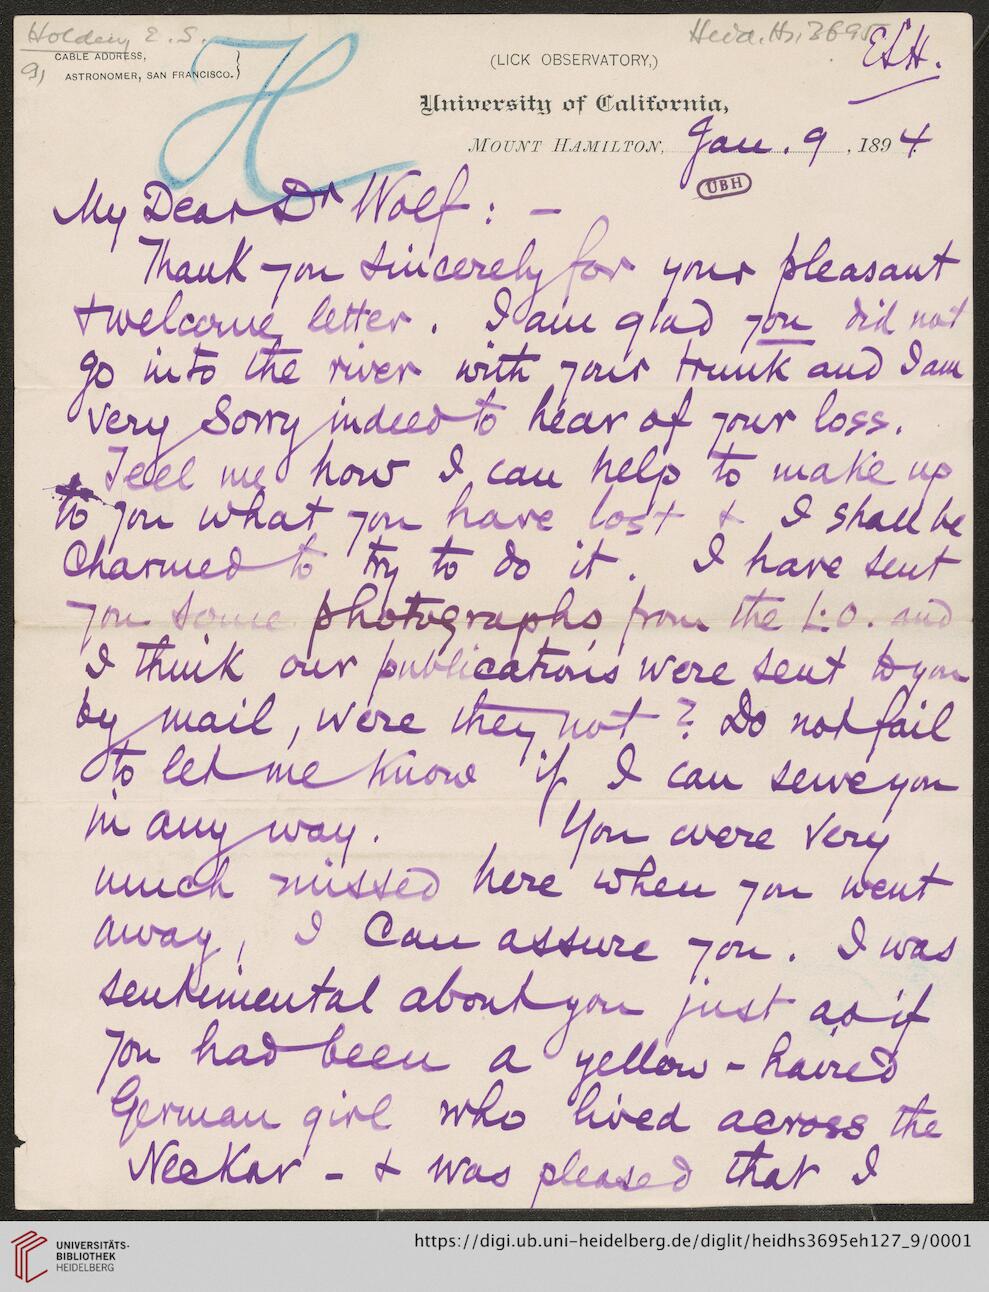 Holden, E. S.
9,
Heid. Hs. 3695
ESH.
CABLE ADDRESS,
ASTRONOMER, SAN FRANCISCO.
H
(LICK OBSERVATORY,)
University of California,
MOUNT HAMILTON, Jan. 9, 1894
UBH
My Dear Dr Wolf: —
Thank you sincerely for your pleasant
+ welcome letter. I am glad you did not
go into the river with your trunk and I am
very sorry indeed to hear of your loss.
Tell me how I can help to make up
to you what you have lost + I shall be
charmed to try to do it. I have sent
you some photographs from the L.O. and
I think our publications were sent to you
by mail, were they not? Do not fail
to let me know if I can serve you
in any way. You were very
much missed here when you went
away, I can assure you. I was
sentimental about you just as if
you had been a yellow-haired
German girl who lived across the
Neckar — + was pleased that I
UNIVERSITÄTS-
BIBLIOTHEK
HEIDELBERG
https://digi.ub.uni-heidelberg.de/diglit/heidhs3695eh127_9/0001